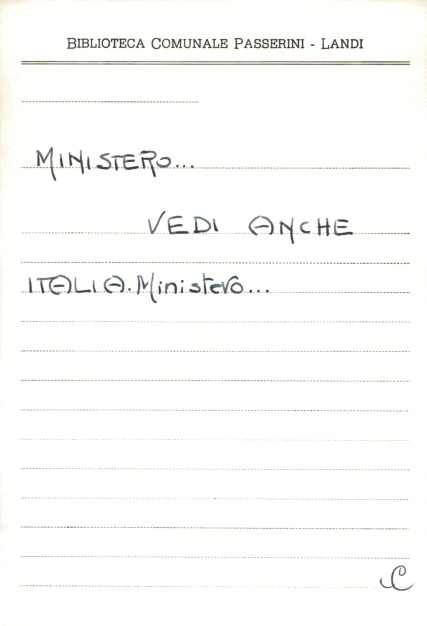 BIBLIOTECA COMUNALE PASSERINI - LANDI
MINISTERO...
VEDI ANCHE
ITALIA. Ministero...
C